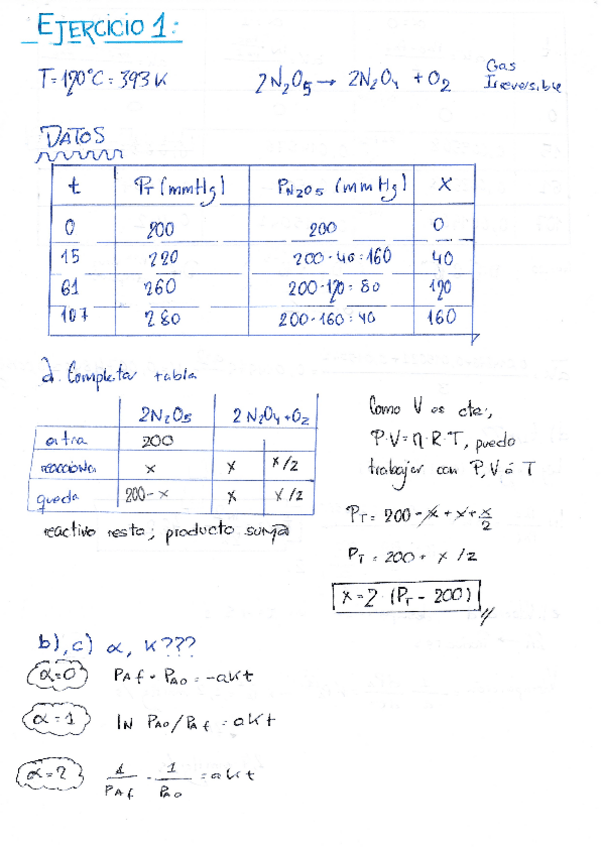 EJERCICIO 1:
T=120°C = 393 K 2N2O5 → 2N2O4 + O2 Gas Irreversible
DATOS
t PT (mmHg) PN2O5 (mmHg) X
0 200 200 0
15 220 200-40=160 40
61 260 200-120=80 120
107 280 200-160=40 160
a. Completar tabla
2N2O5 2N2O4+O2
entra 200
reacciona x x x/2
queda 200-x x x/2
reactivo resta; producto suma
Como V es cte;
P·V=n·R·T, puedo
trabajar con P, V ó T
PT = 200 - x + x + x/2
PT = 200 + x/2
x = 2·(PT - 200)
b), c) α, K???
α=0 PAf - PAo = -akt
α=1 ln PAo/PAf = akt
α=2 1/PAf - 1/PAo = akt